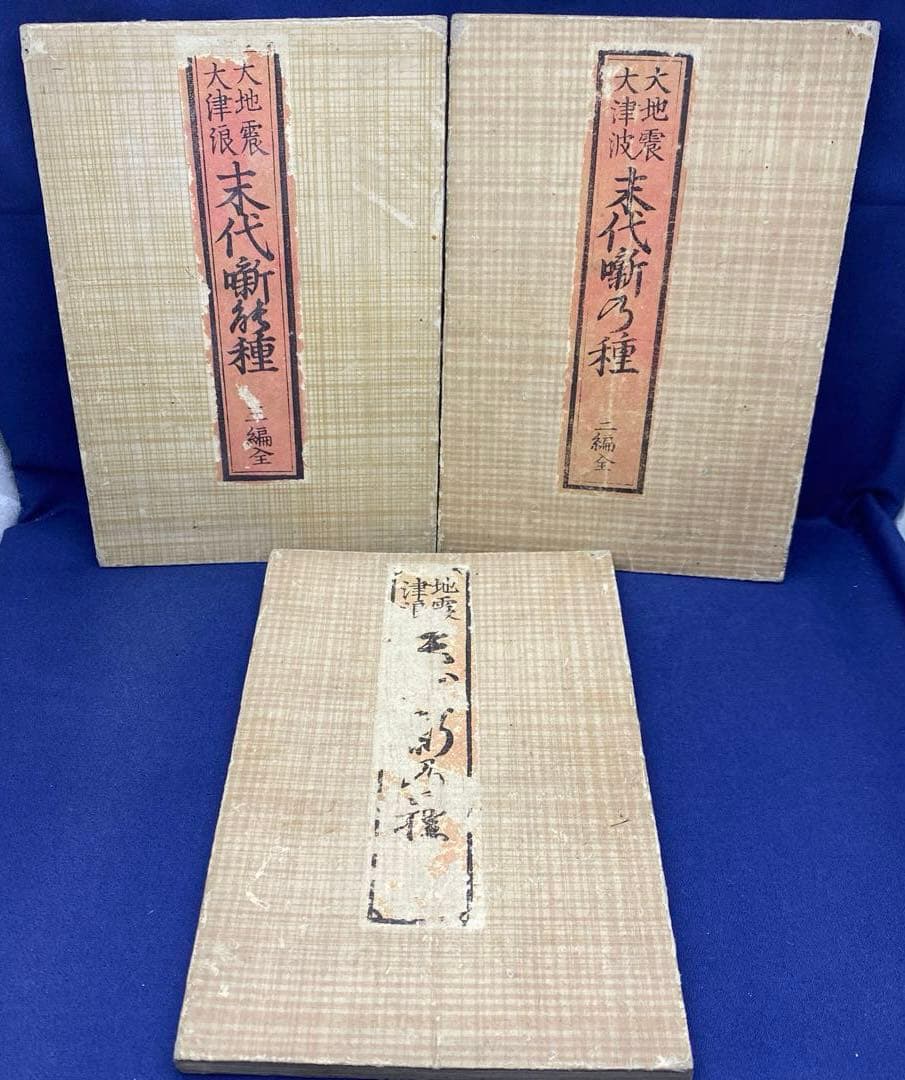 大地震
大津浪
末代噺能種
三編全
大地震
大津波
末代噺乃種
二編全
地震
津浪
噺乃種